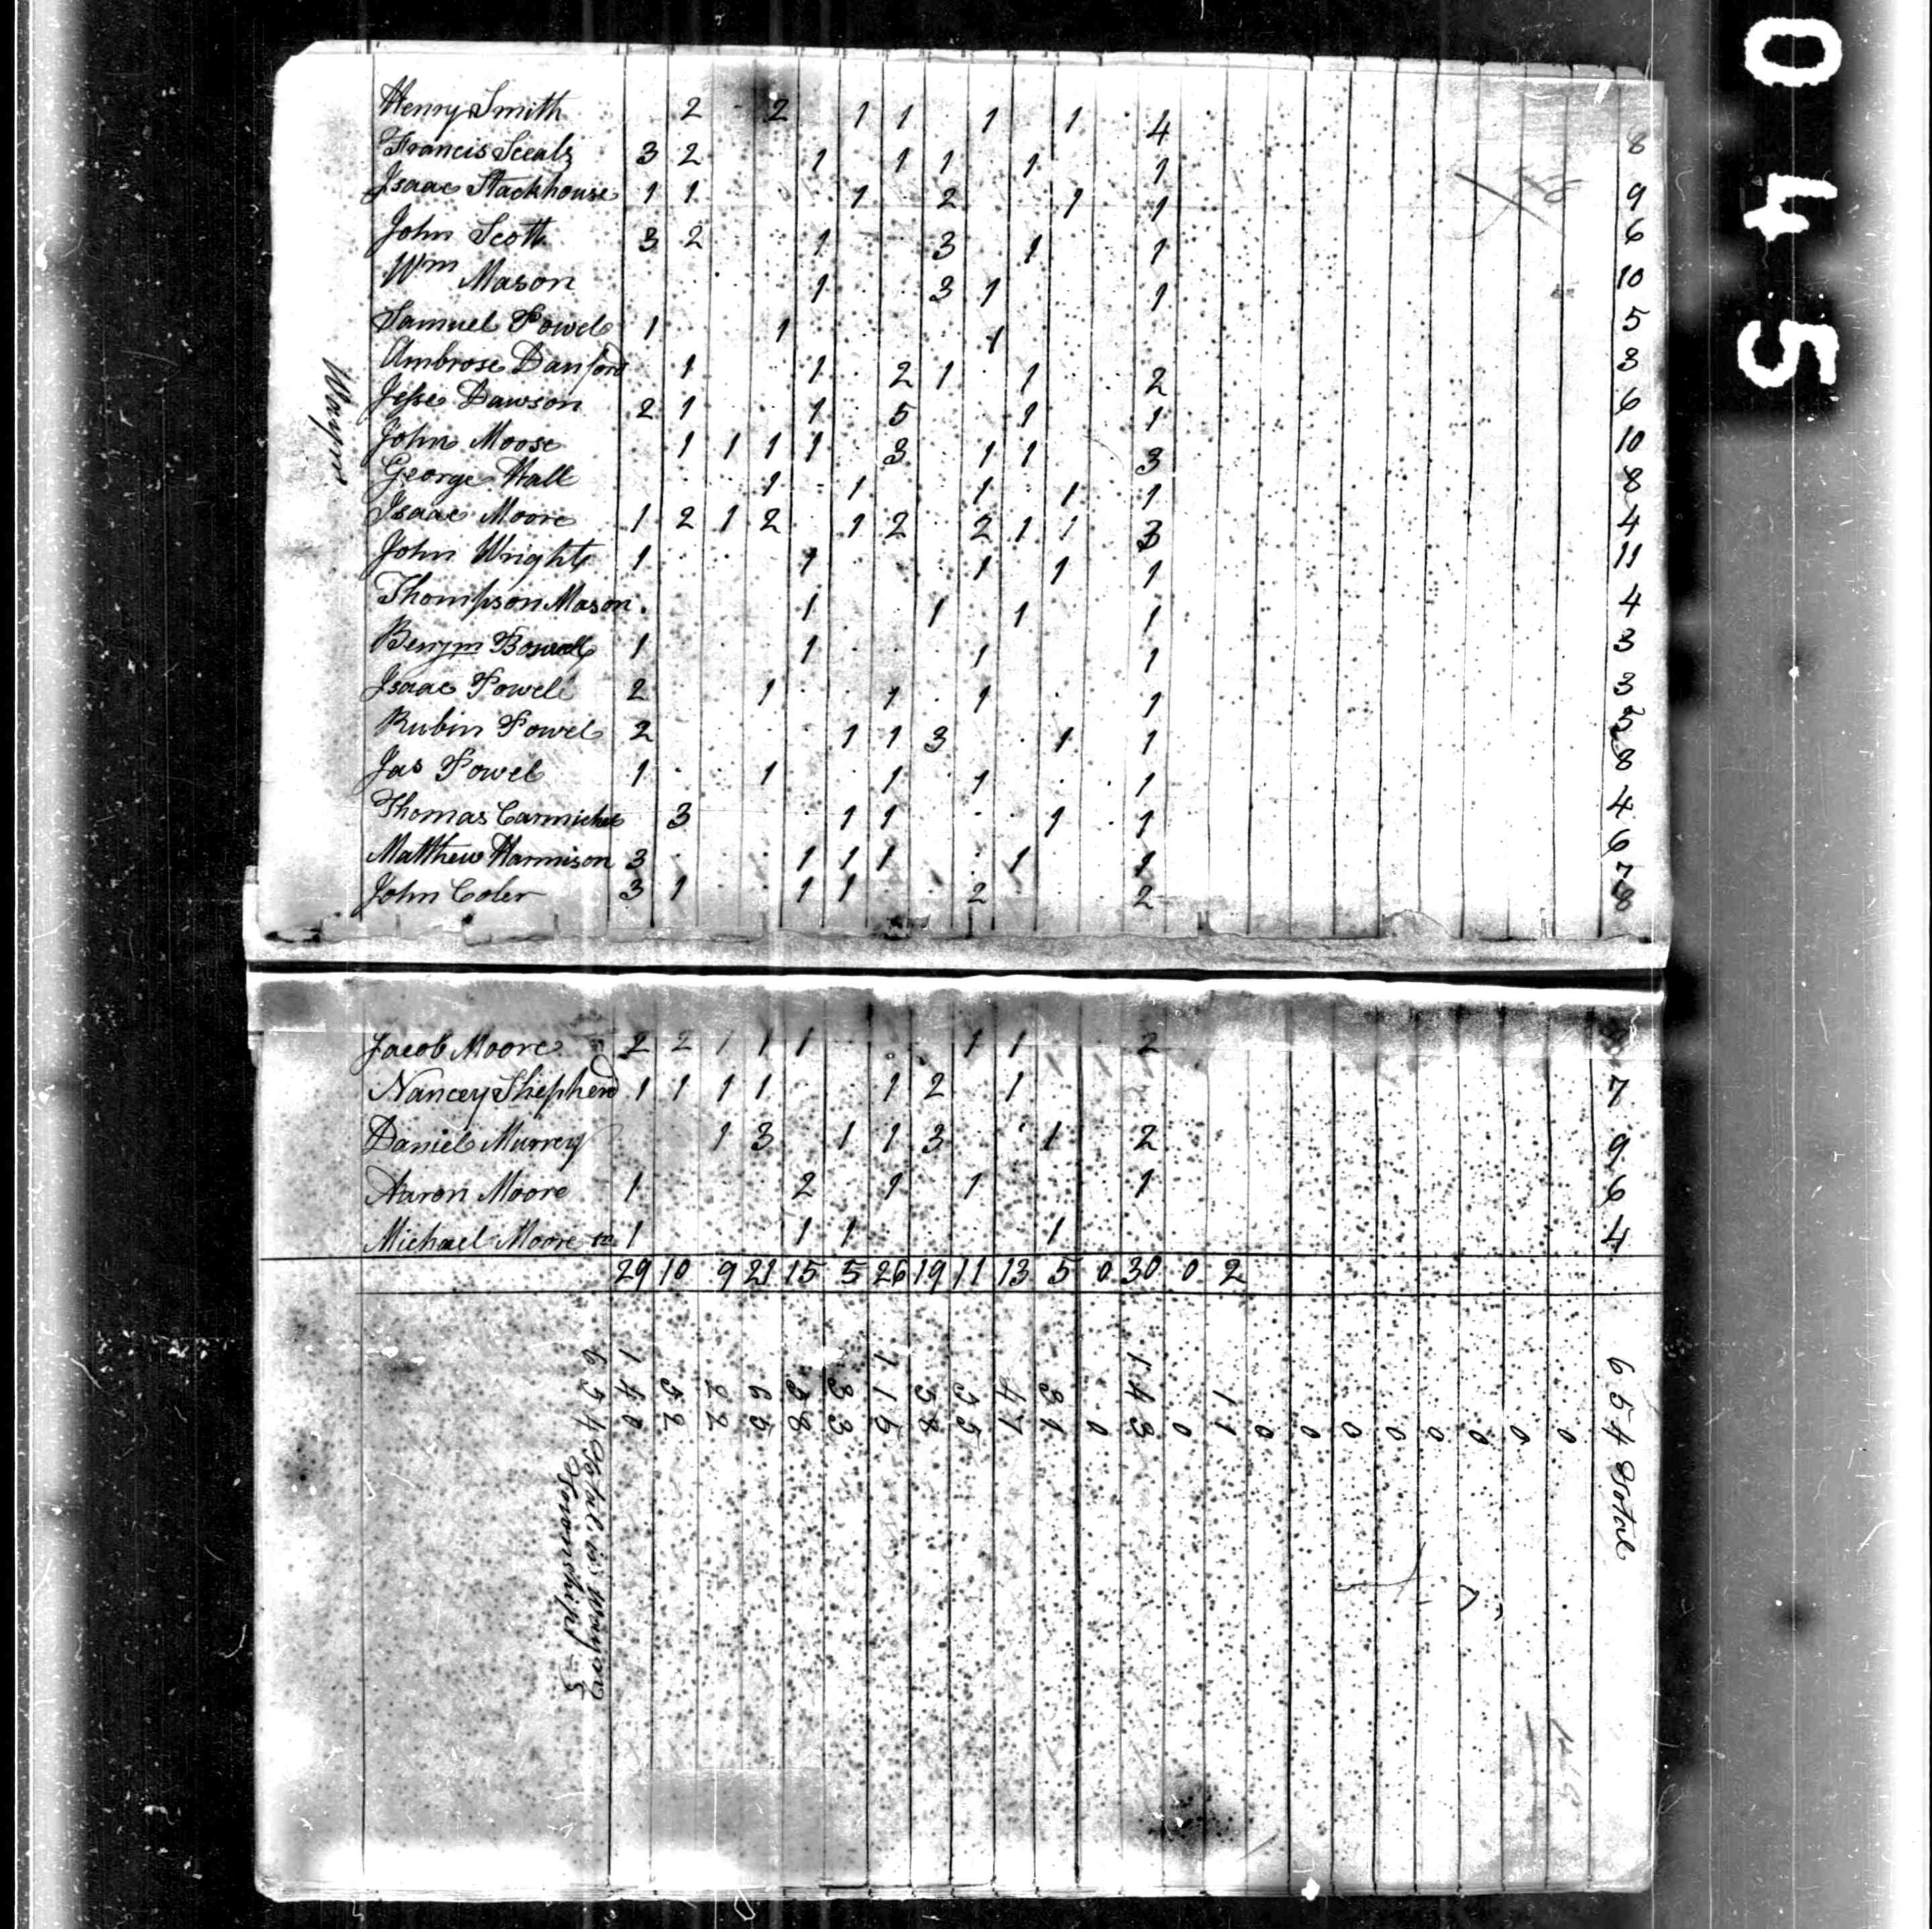 Henry Smith 2 2 1 1 1 1 4 8
Francis 3 2 1 1 1 1 1 9
Isaac Stackhouse 1 1 1 2 1 1 6
John Scott 3 2 1 3 1 1 10
Wm Mason 1 3 1 1 5
Samuel Powel 1 1 1 3
Ambrose Danford 1 1 2 1 1 2 6
Jesse Dawson 2 1 1 5 1 1 10
John Moose 1 1 1 1 3 1 1 3 8
George Hall 1 1 1 1 1 4
Isaac Moore 1 2 1 2 1 2 2 1 1 3 11
John Wright 1 1 1 1 1 4
Thompson Mason 1 1 1 1 3
Benjm 1 1 1 1 3
Isaac Powell 2 1 1 1 1 5
Rubin Powel 2 1 1 3 1 1 8
Jas Powel 1 1 1 1 1 4
Thomas Carmichel 3 1 1 1 1 6
Matthew Harmison 3 1 1 1 1 1 7
John Coler 3 1 1 1 2 2 8
Wayne
Jacob Moore 2 2 1 1 1 1 1 2
Nancey Shepherd 1 1 1 1 1 2 1 7
Daniel Murrey 1 3 1 1 3 1 2 9
Aaron Moore 1 2 1 1 1 6
Michael Moore 1 1 1 1 4
29 10 9 21 15 5 26 19 11 13 5 0 30 0 2
654 Total in Wayne Township
140 52 22 65 58 33 116 58 55 47 31 0 143 0 11 0 0 0 0 0 0 0 0
654 Total
045